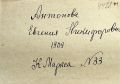 Антонова
Евгения Никифоровна
1909
К. Маркса №33